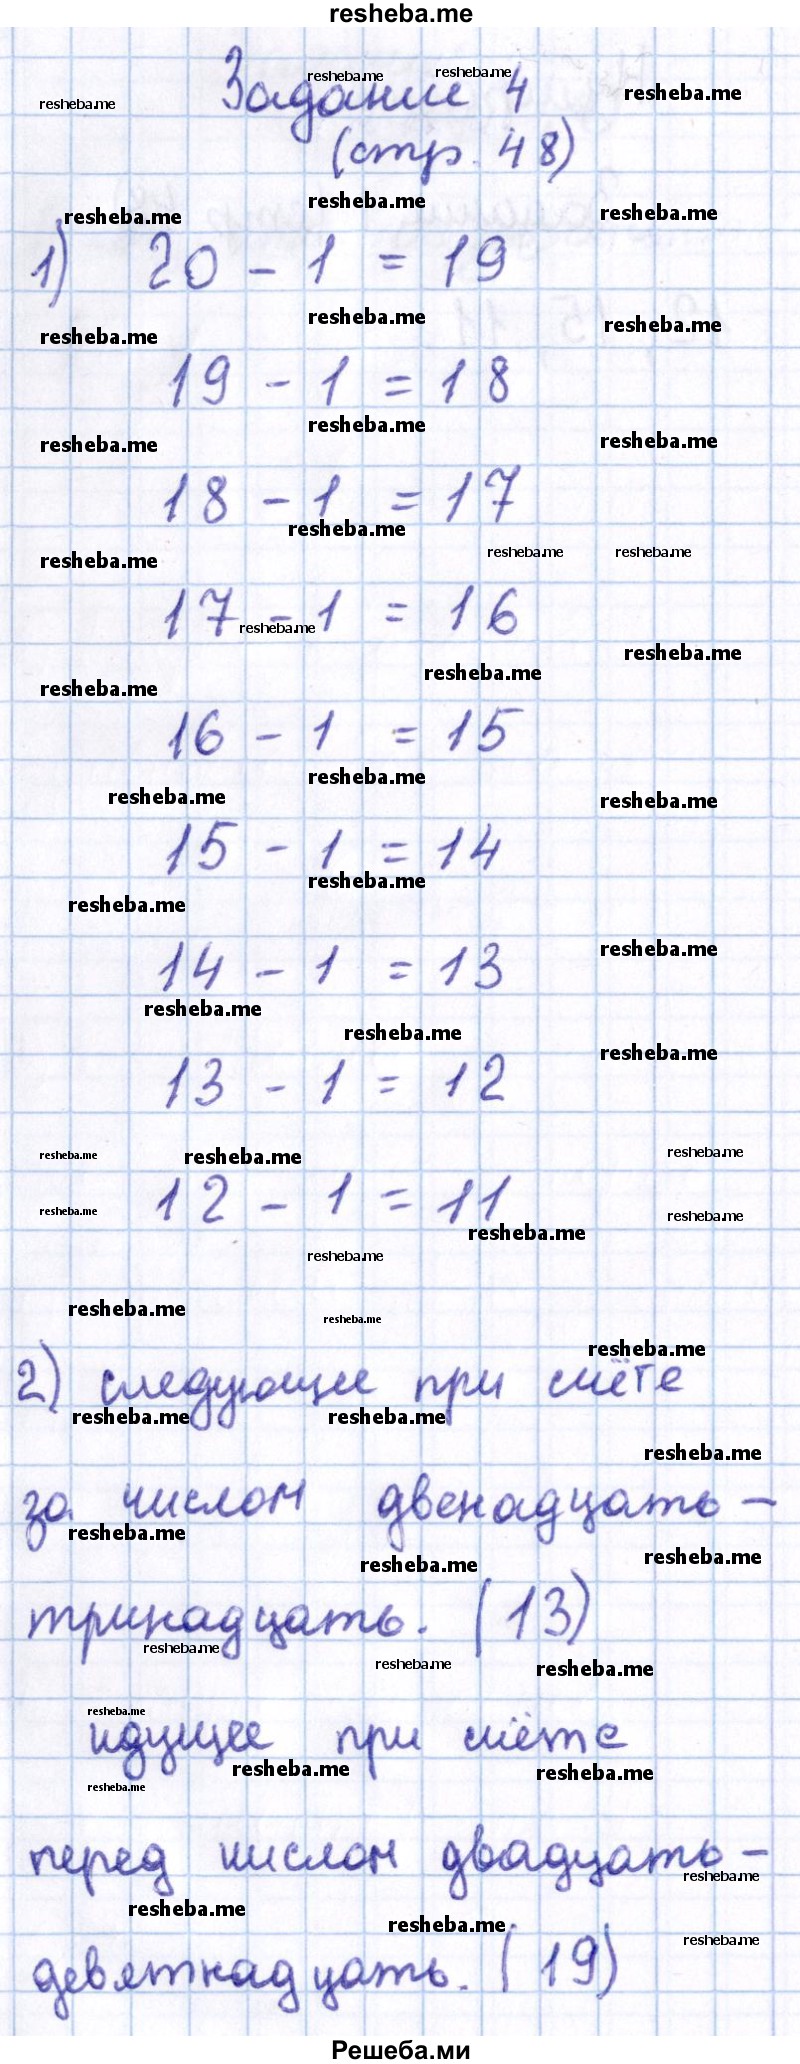 resheba.me
Задание 4
(стр. 48)
1) 20 - 1 = 19
19 - 1 = 18
18 - 1 = 17
17 - 1 = 16
16 - 1 = 15
15 - 1 = 14
14 - 1 = 13
13 - 1 = 12
12 - 1 = 11
2) следующее при счёте
за числом двенадцать –
тринадцать. (13)
идущее при счёте
перед числом двадцать –
девятнадцать. (19)
Решеба.ми